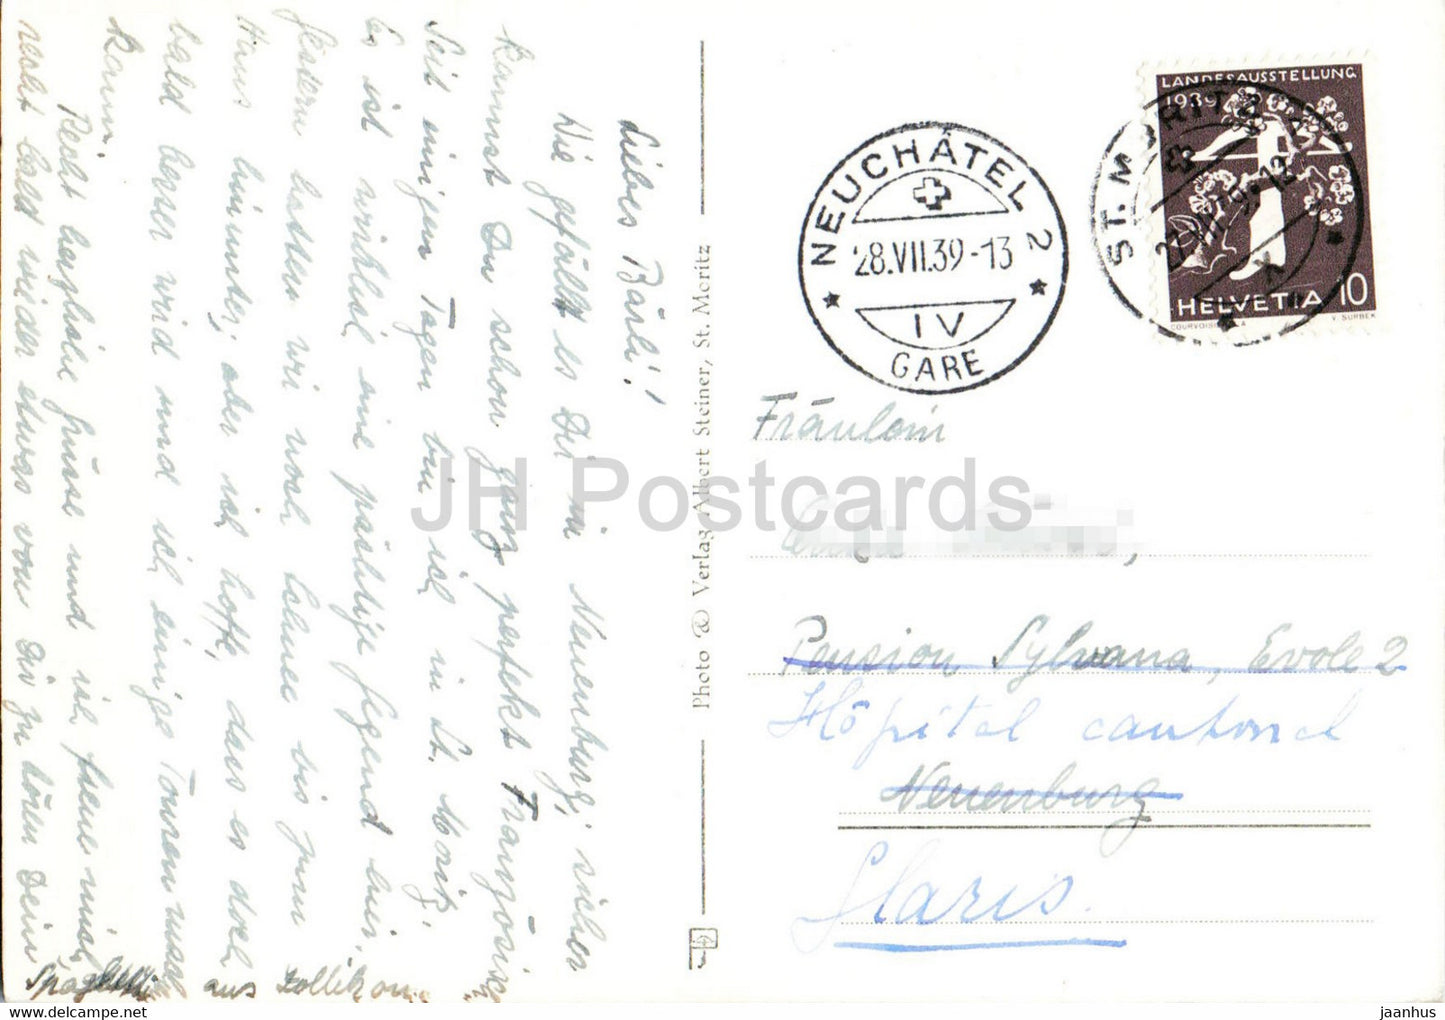 Liebes Bärli!
Wie gefällt es Dir in Neuenburg; sicher
kannst Du schon ganz perfekt Französisch
Seit einigen Tagen bin ich in St. Moritz.
Es ist wirklich eine prächtige Gegend hier.
Gestern hatten wir noch Schnee bis zum
Haus hinunter, aber ich hoffe, dass es doch
bald besser wird und ich einige Touren machen
kann.
Recht herzliche Grüsse und ich freue mich
recht bald wieder etwas von Dir zu hören Dein
Spaghetti aus Zollikon.
Photo @ Verlag Albert Steiner, St. Moritz
NEUCHÂTEL 2
28.VII.39-13
IV
GARE
LANDESAUSSTELLUNG
1939
HELVETIA 10
COURVOISIER S.A.
V. SURBEK
ST. MORITZ
Fräulein
Pension Sylvana, Evole 2
Hôpital cantonal
Neuenburg
Glaris.
JH Postcards
www.hippostcard.com
jaanhus